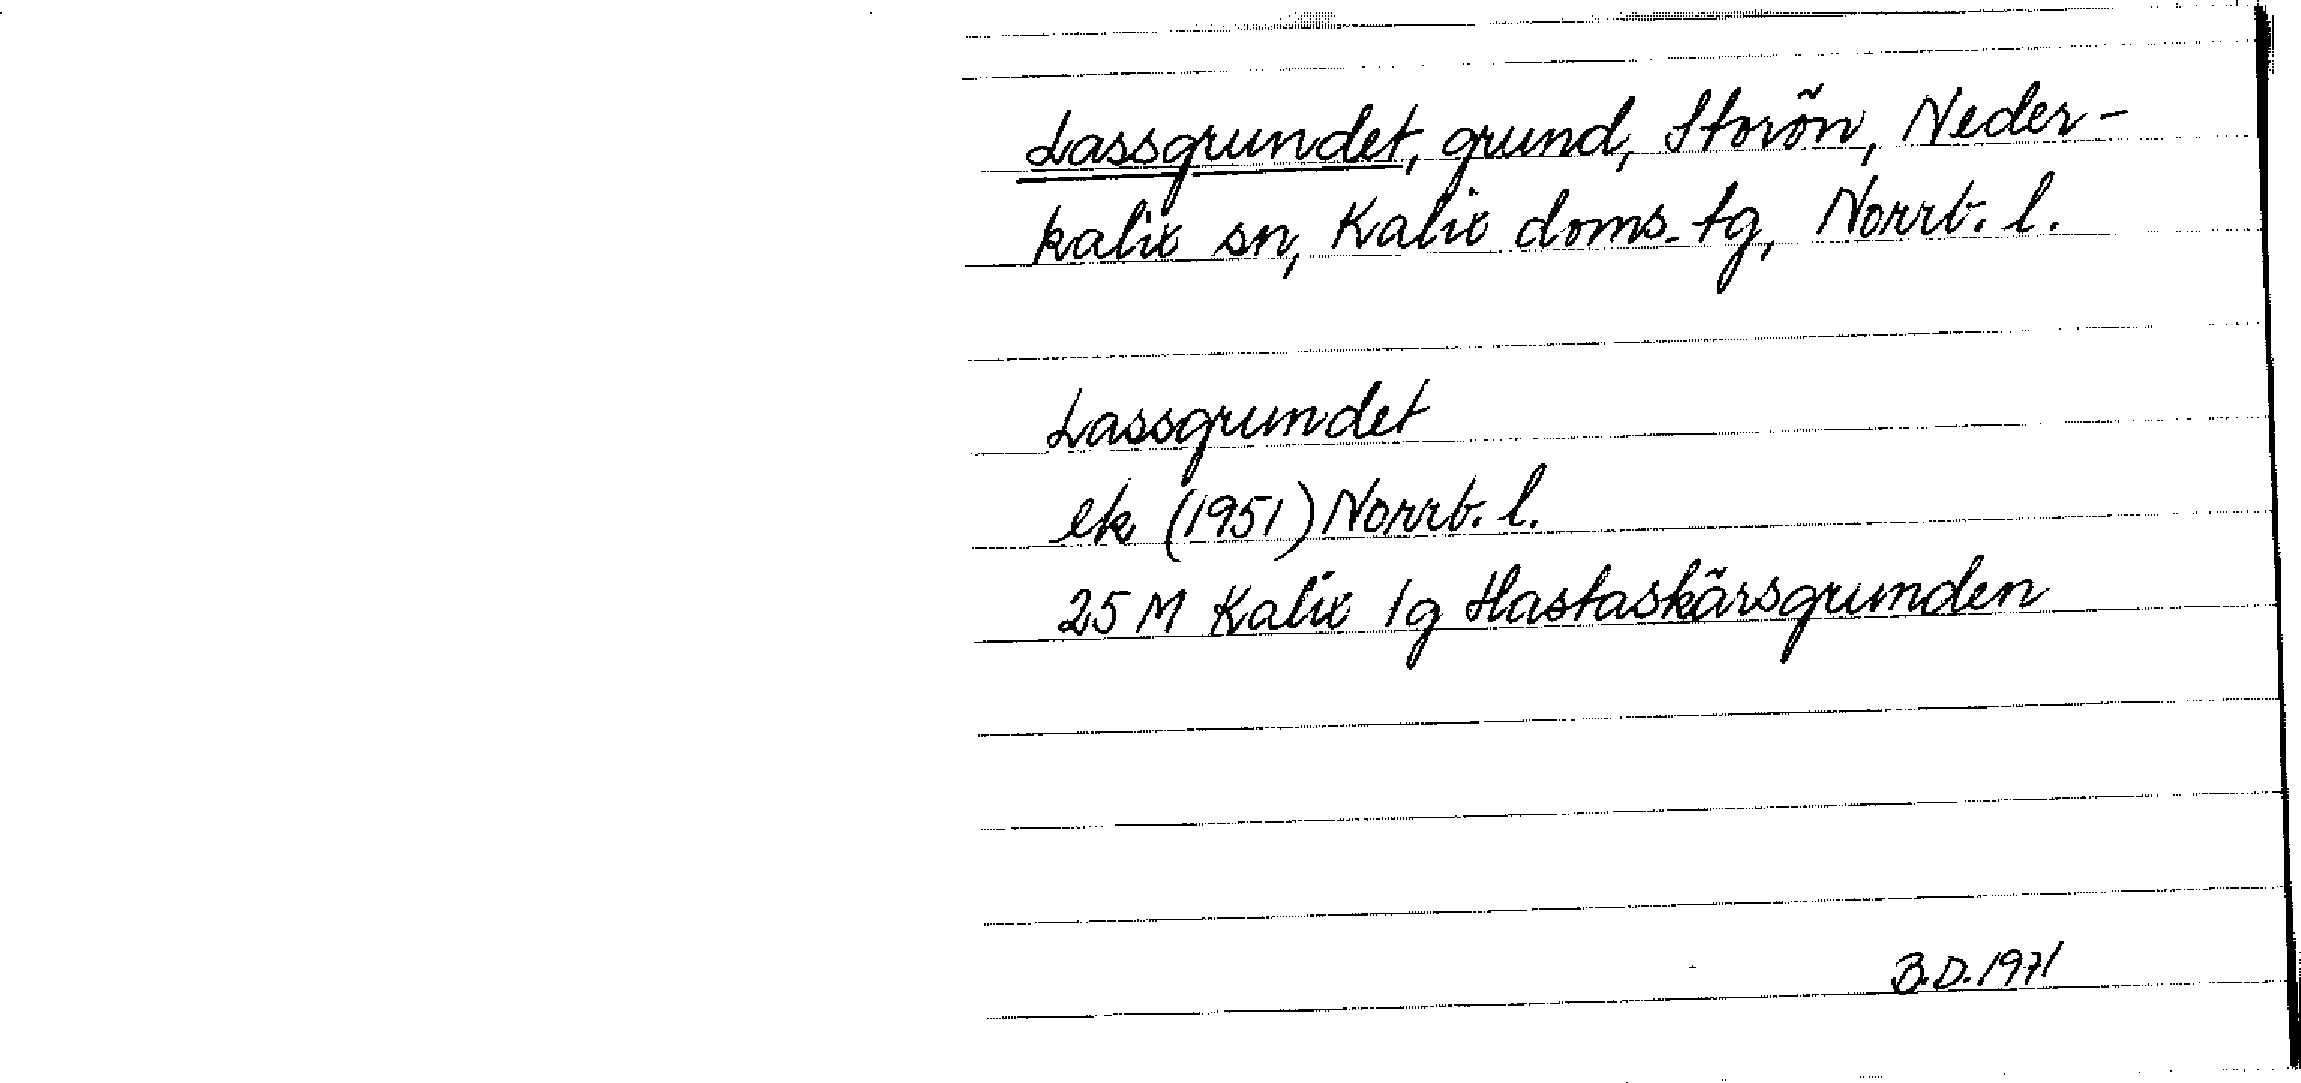 Lassgrundet, grund, Storön, Neder-
kalix sn, Kalix doms. tg, Norrb. l.
Lassgrundet
ek (1951) Norrb. l.
25 M Kalix 1g Hastaskärsgrunden
B.D. 1971